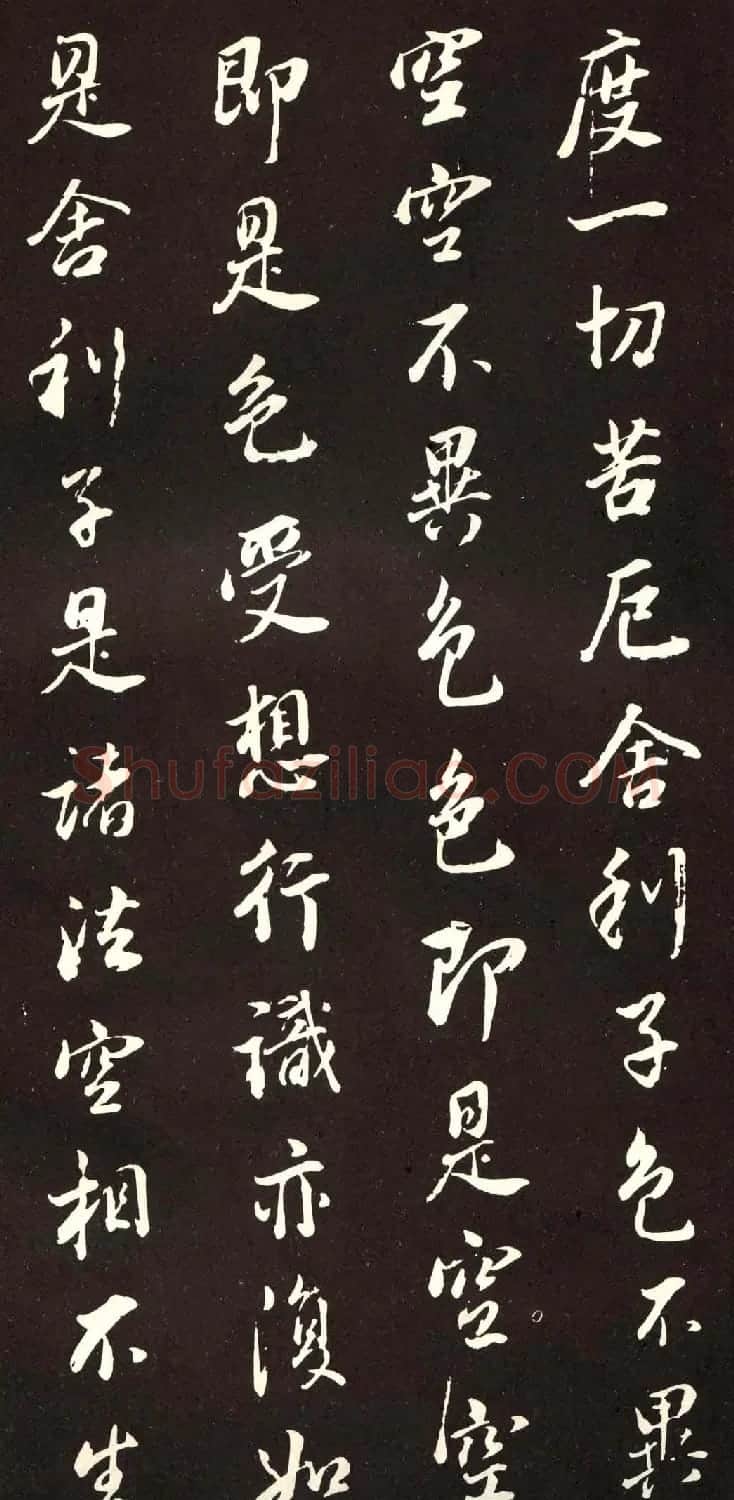 度一切苦厄舍利子色不異
空空不異色色即是空空
即是色受想行識亦復如
是舍利子是諸法空相不生
Shufaziliao.COM